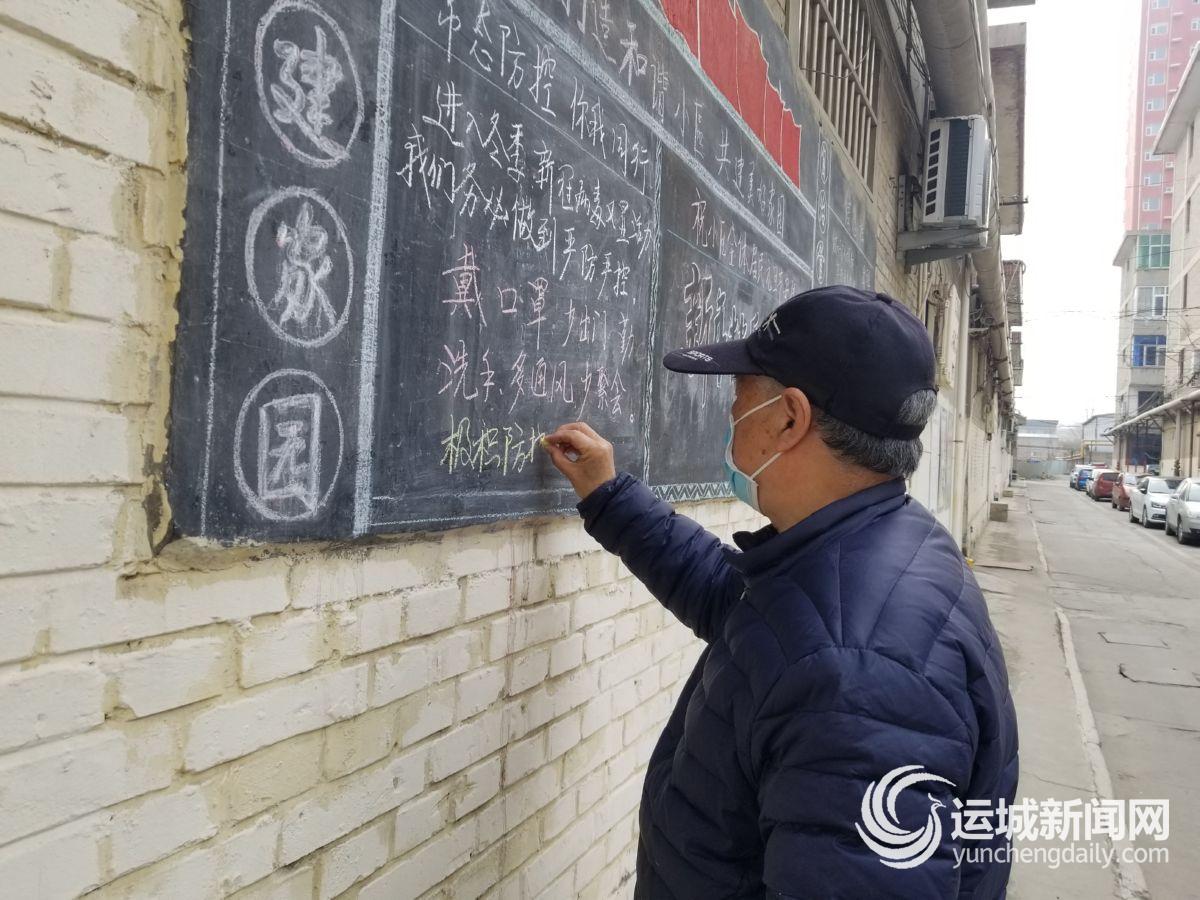 建
家
园
打造和谐小区 共建美好家园
常态防控 你我同行
进入冬季新冠病毒风显活力
我们务必做到严防严控，
戴口罩 少出门 勤
洗手 多通风 少聚会。
积极防控
祝小区全体居
新
SPORTS
运城新闻网
yunchengdaily.com